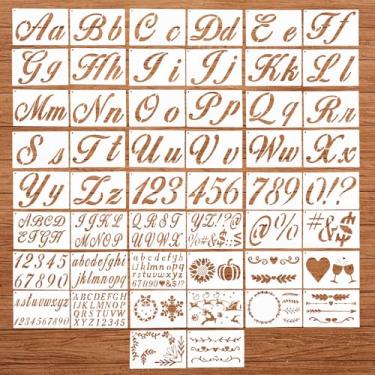 Aa Bb Cc Dd Ee Ff
Gg Hh Ii Jj Kk Ll
Mm Nn Oo Pp Qq Rr
Ss Tt Uu Vv Ww Xx
Yy Zz 123 456 789 0!?
ABCD
EFGH
IJKL
MNOP
QRST
UVWX
YZ!?@
%#&$
@%
#&$
12345
67890
abcdefghi
jklmnopq
rstuvwxyz
1234567890
ABCDEFGH
IJKLMNOPQ
RSTUVWXYZ